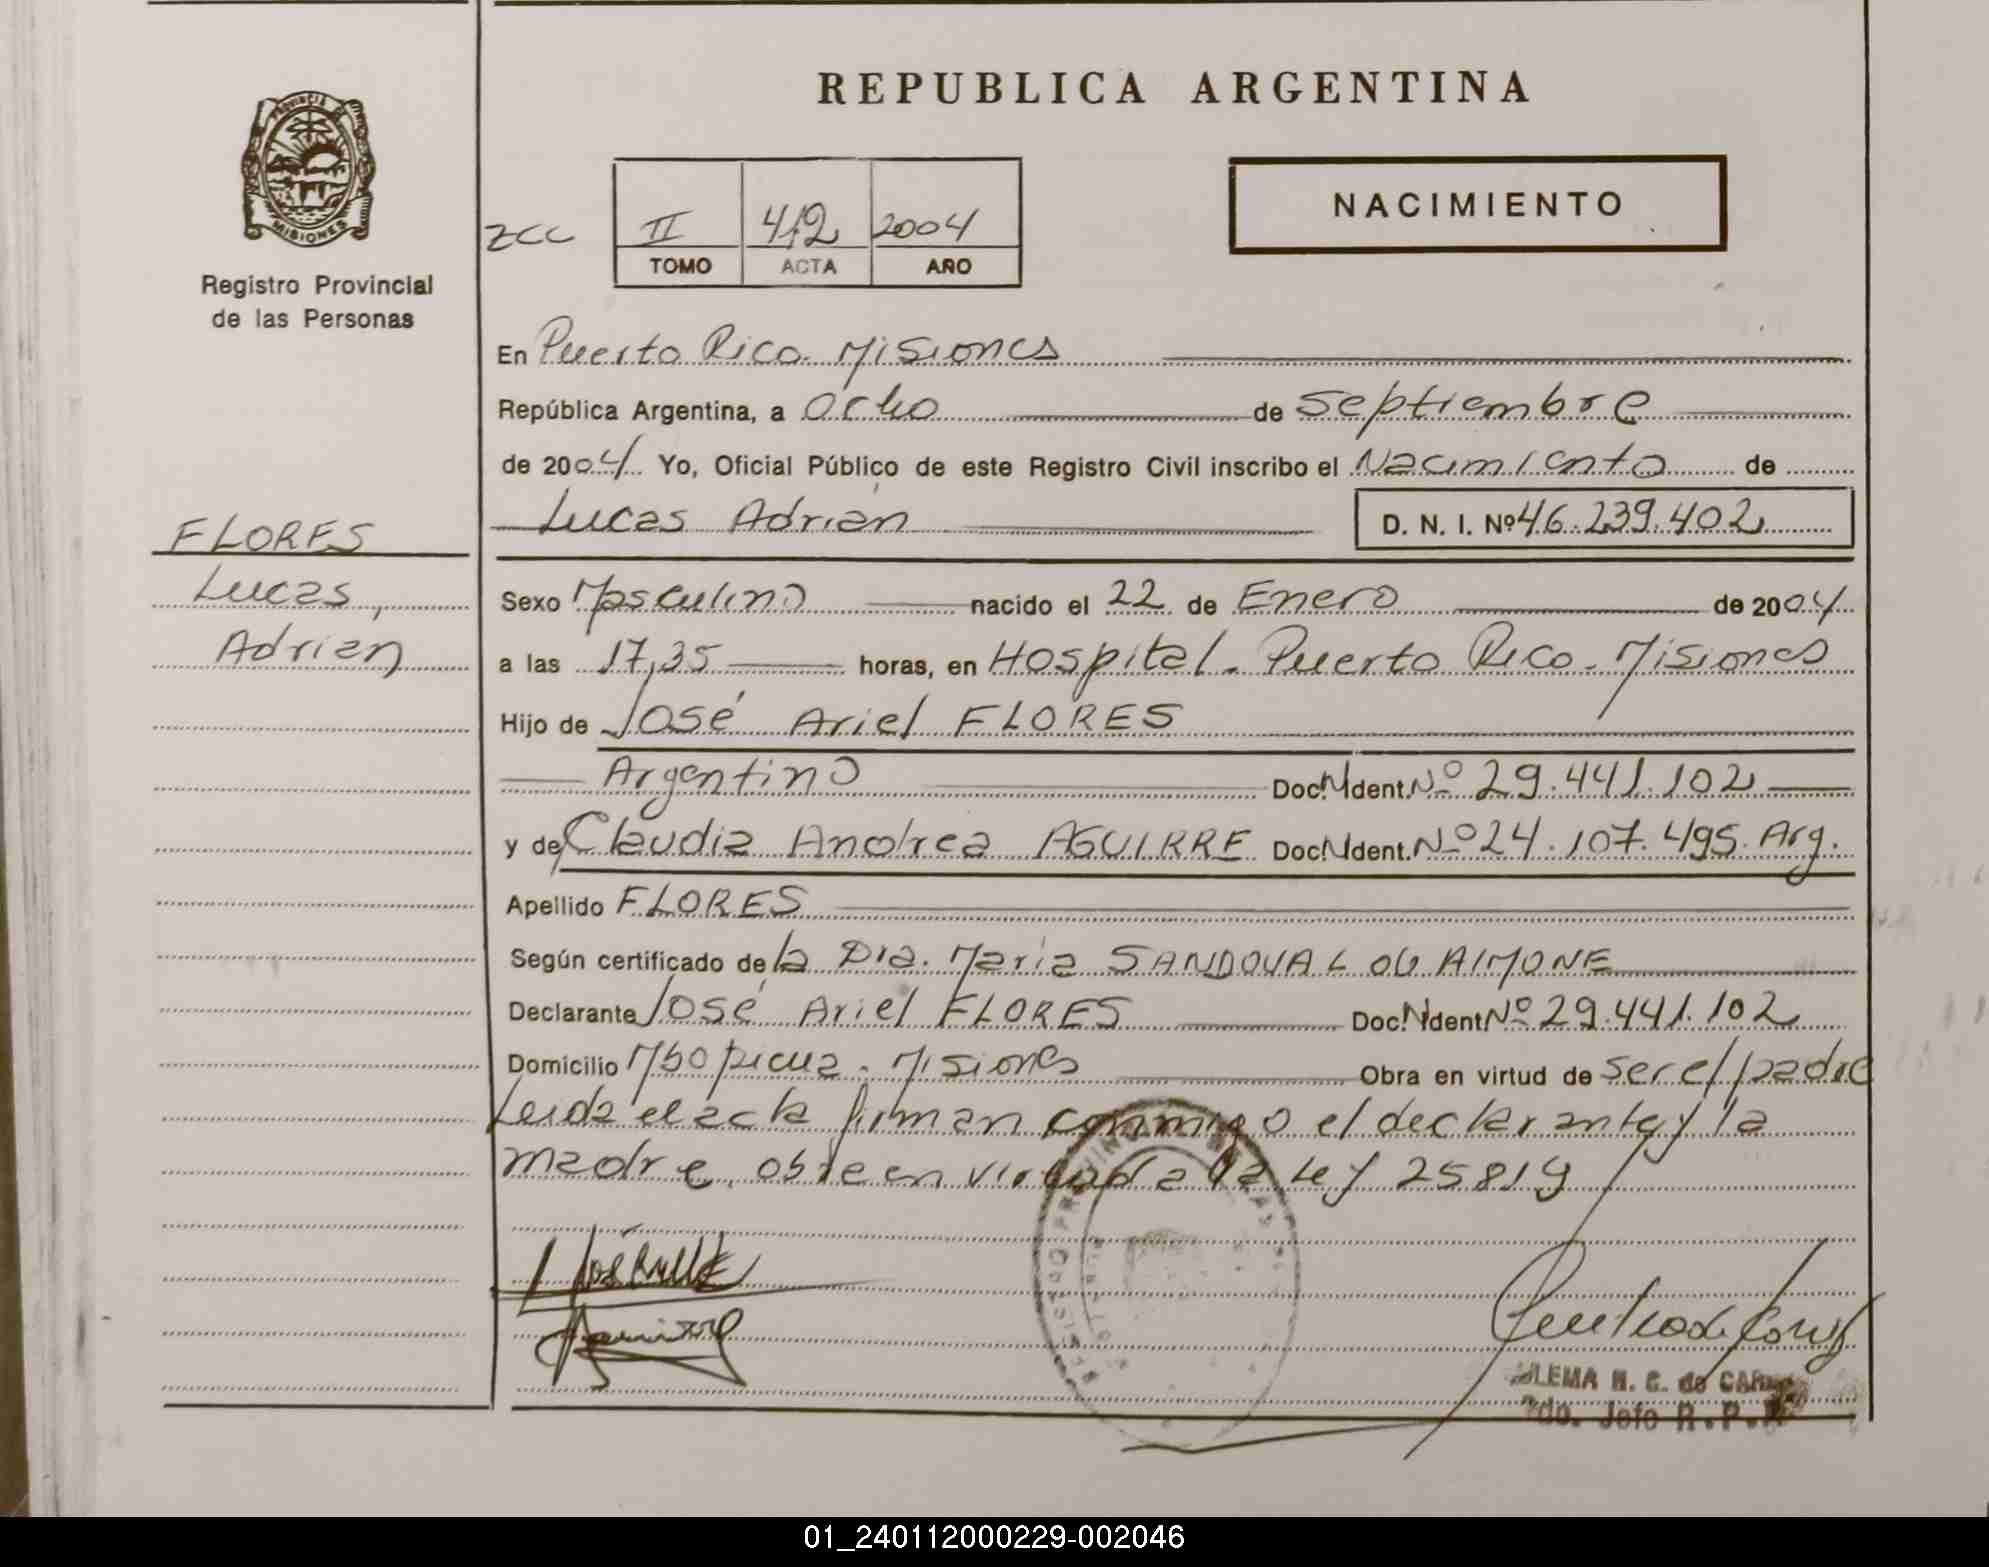 REPUBLICA ARGENTINA
PROVINCIA DE MISIONES
Registro Provincial
de las Personas
NACIMIENTO
ZCC II 412 2004
TOMO ACTA AÑO
En Puerto Rico. Misiones
República Argentina, a Ocho de Septiembre
de 2004 Yo, Oficial Público de este Registro Civil inscribo el Nacimiento de
Lucas Adrián D. N. I. Nº 46.239.402
FLORES
Lucas,
Adrian
Sexo Masculino nacido el 22 de Enero de 2004
a las 17,35 horas, en Hospital. Puerto Rico. Misiones
Hijo de José Ariel FLORES
Argentino Doc. Ident. Nº 29.441.102
y de Claudia Andrea AGUIRRE Doc. Ident. Nº 24.107.495. Arg.
Apellido FLORES
Según certificado de la Dra. Maria SANDOVAL de AIMONE
Declarante José Ariel FLORES Doc. Ident Nº 29.441.102
Domicilio Mbopicua. Misiones Obra en virtud de ser el padre
Leida el acta firman conmigo el declarante y la
madre, obra en virtud a la Ley 25819
REGISTRO PROVINCIAL
de CAR
2do. Jefe R.P.P.
01_240112000229-002046